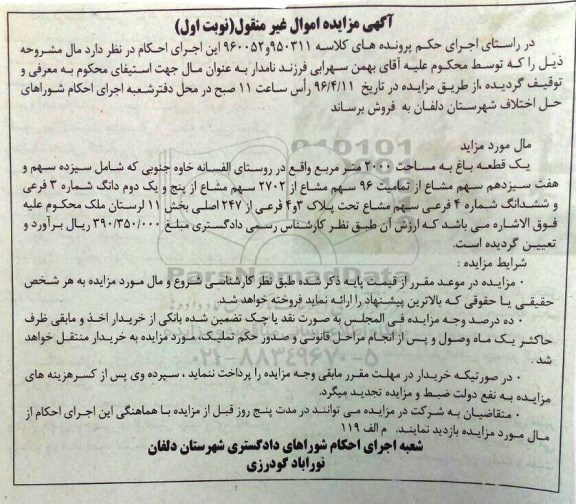 آگهی مزایده اموال غیر منقول(نوبت اول)
در راستای اجرای حکم پرونده های کلاسه ۹۵۰۳۱۱و۹۶۰۰۵۲ این اجرای احکام در نظر دارد مال مشروحه
ذیل را که توسط محکوم علیه آقای بهمن سهرابی فرزند نامدار به عنوان مال جهت استیفای محکوم به معرفی و
توقیف گردیده ،از طریق مزایده در تاریخ ۹۶/۴/۱۱ رأس ساعت ۱۱ صبح در محل دفترشعبه اجرای احکام شوراهای
حل اختلاف شهرستان دلفان به فروش برساند
مال مورد مزاید
یک قطعه باغ به مساحت ۲۰۰۰ متر مربع واقع در روستای القسانه خاوه جنوبی که شامل سیزده سهم و
هفت سیزدهم سهم مشاع از تمامیت ۹۶ سهم مشاع از ۲۷۰۲ سهم مشاع از پنج و یک دوم دانگ شماره ۳ فرعی
و ششدانگ شماره ۴ فرعی سهم مشاع تحت پلاک ۳و۴ فرعی از ۲۴۷ اصلی بخش ۱۱ لرستان ملک محکوم علیه
فوق الاشاره می باشد که ارزش آن طبق نظر کارشناس رسمی دادگستری مبلغ ۳۹۰/۳۵۰/۰۰۰ ریال برآورد و
تعیین گردیده است.
شرایط مزایده :
۰ مزایده در موعد مقرر از قیمت پایه ذکر شده طبق نظر کارشناسی شروع و مال مورد مزایده به هر شخص
حقیقی یا حقوقی که بالاترین پیشنهاد را ارائه نماید فروخته خواهد شد.
۰ ده درصد وجه مزایده فی المجلس به صورت نقد یا چک تضمین شده بانکی از خریدار اخذ و مابقی ظرف
حداکثر یک ماه وصول و پس از انجام مراحل قانونی و صدور حکم تملیک، مورد مزایده به خریدار منتقل خواهد
شد .
۰ در صورتیکه خریدار در مهلت مقرر مابقی وجه مزایده را پرداخت ننماید ، سپرده وی پس از کسرهزینه های
مزایده به نفع دولت ضبط و مزایده تجدید میگرد.
۰ متقاضیان به شرکت در مزایده می توانند در مدت پنج روز قبل از مزایده با هماهنگی این اجرای احکام از
مال مورد مزایده بازدید نمایند. م الف ۱۱۹
شعبه اجرای احکام شوراهای دادگستری شهرستان دلفان
نورآباد گودرزی
ParsNamadData
۰۲۱-۸۸۳۴۹۶۷۰-۵